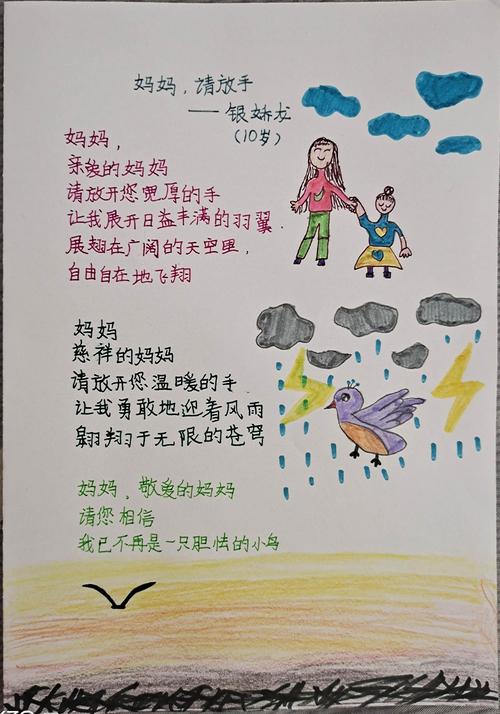 妈妈，请放手
——银娣龙
（10岁）
妈妈，
亲爱的妈妈
请放开您宽厚的手
让我展开日益丰满的羽翼.
展翅在广阔的天空里，
自由自在地飞翔
妈妈
慈祥的妈妈
请放开您温暖的手
让我勇敢地迎着风雨
翱翔于无限的苍穹
妈妈，敬爱的妈妈
请您相信
我已不再是一只胆怯的小鸟